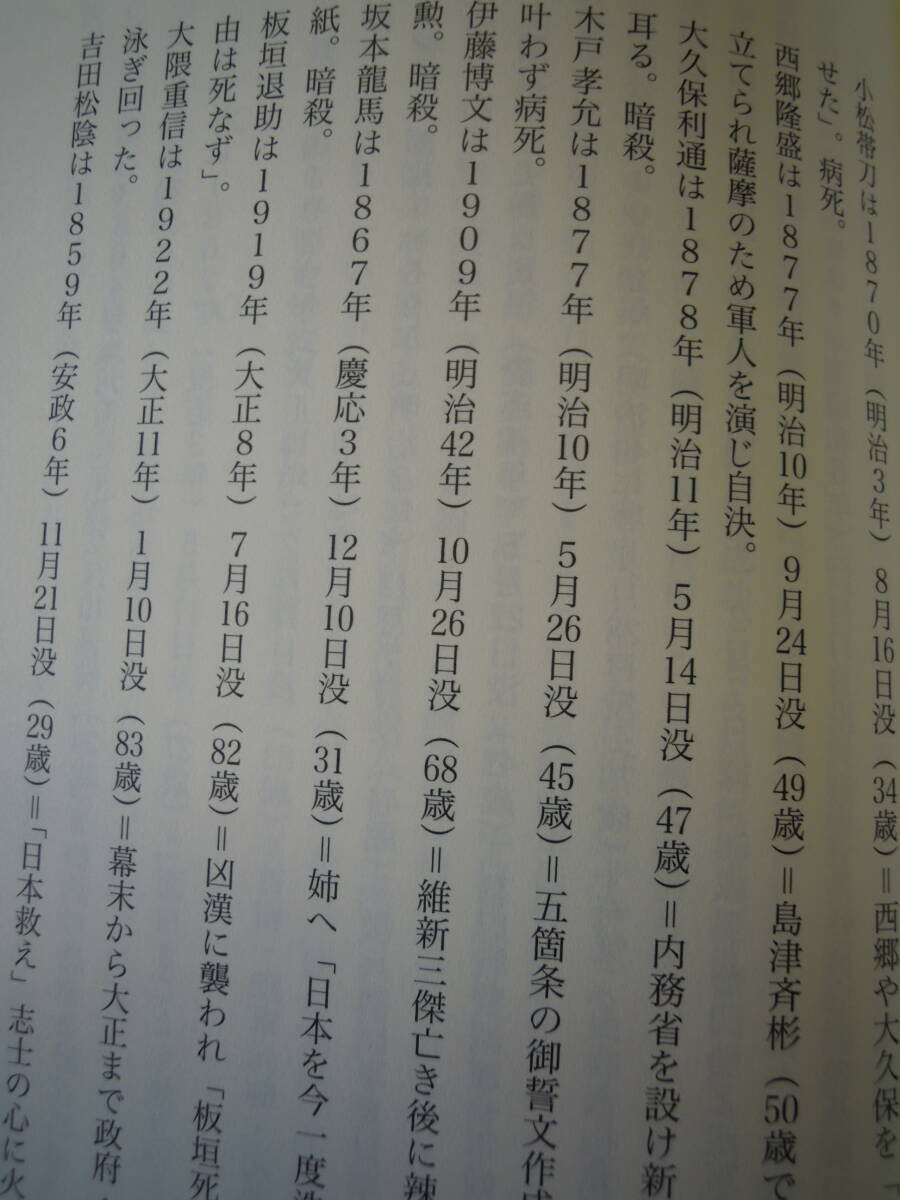 小松帯刀は1870年（明治3年）　8月16日没　（34歳）＝西郷や大久保を「
せた」。病死。
西郷隆盛は1877年（明治10年）　9月24日没　（49歳）＝島津斉彬（50歳で
立てられ薩摩のため軍人を演じ自決。
大久保利通は1878年（明治11年）　5月14日没　（47歳）＝内務省を設け新
耳る。暗殺。
木戸孝允は1877年（明治10年）　5月26日没　（45歳）＝五箇条の御誓文作成
叶わず病死。
伊藤博文は1909年（明治42年）　10月26日没　（68歳）＝維新三傑亡き後に辣
勲。暗殺。
坂本龍馬は1867年（慶応3年）　12月10日没　（31歳）＝姉へ「日本を今一度洗
紙。暗殺。
板垣退助は1919年（大正8年）　7月16日没　（82歳）＝凶漢に襲われ「板垣死
由は死なず」。
大隈重信は1922年（大正11年）　1月10日没　（83歳）＝幕末から大正まで政府
泳ぎ回った。
吉田松陰は1859年（安政6年）　11月21日没（29歳）＝「日本救え」志士の心に火